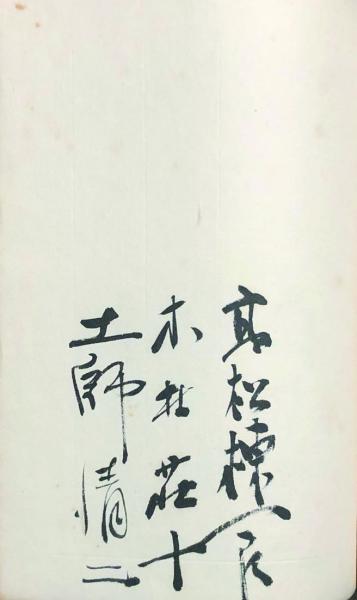 高松棟一郎
木村荘十
土師清二